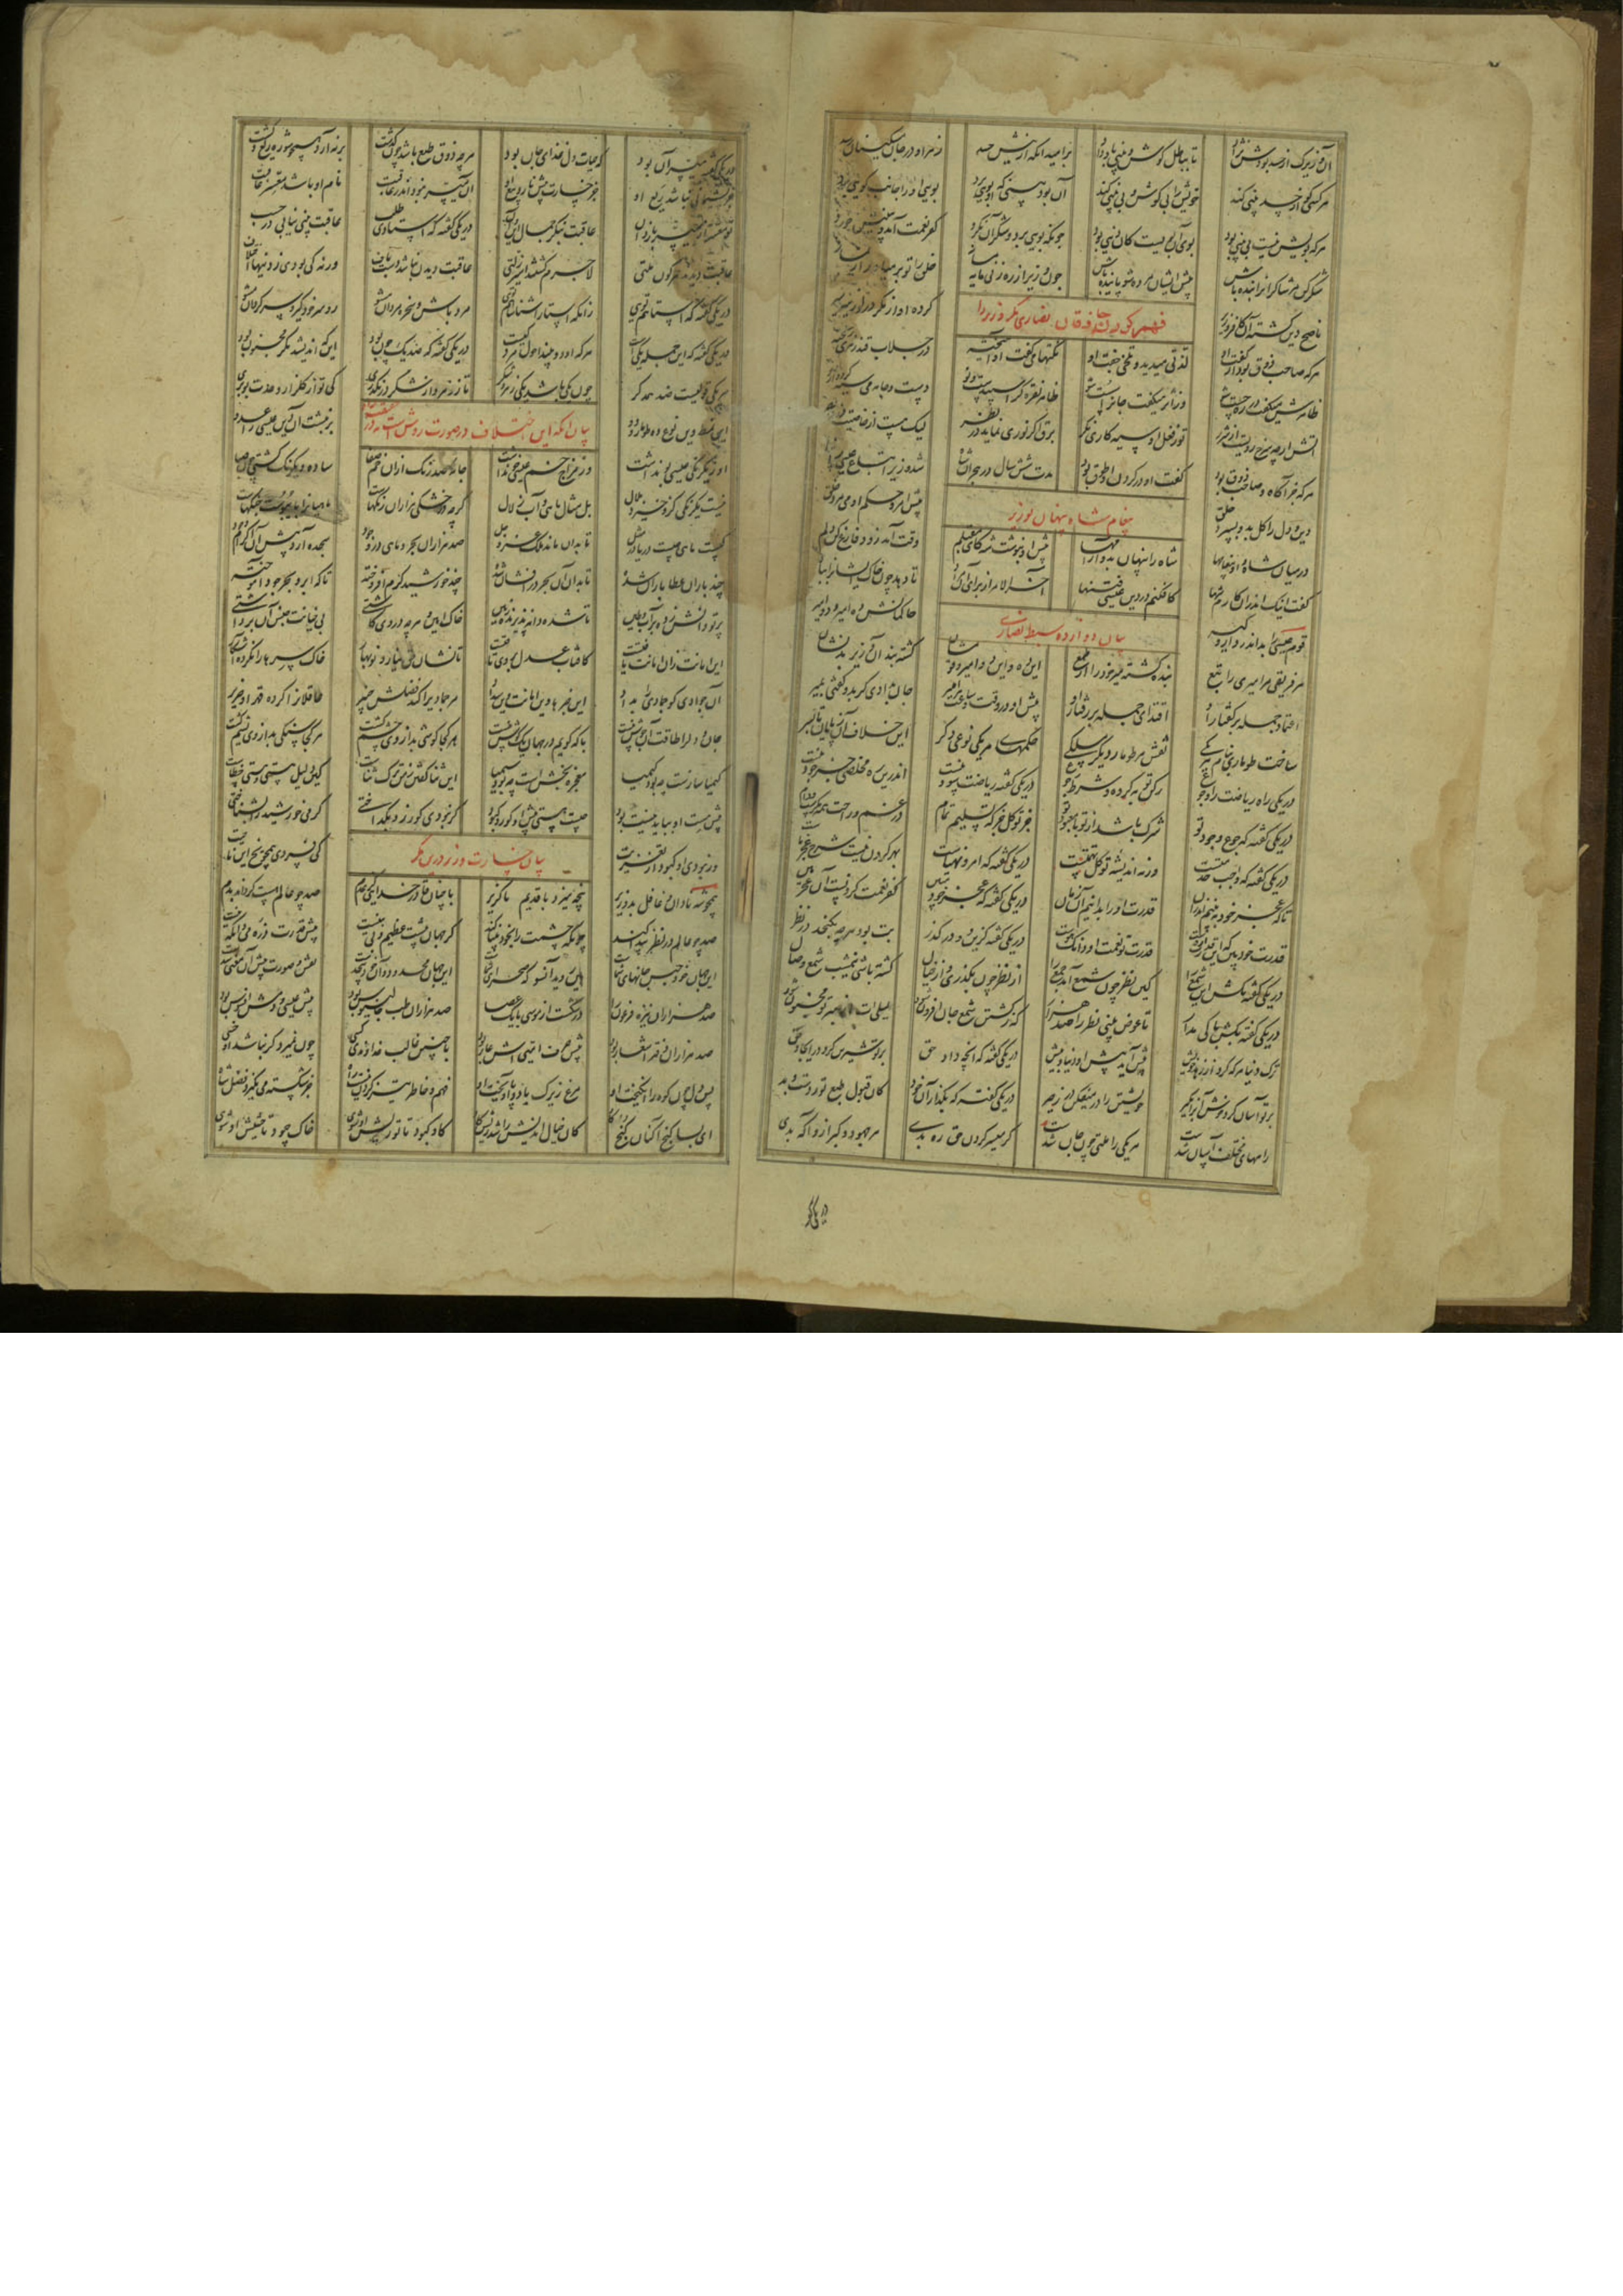 آن وزیرک از حسد بودش نژاد تا بباطل گوش و بینی باد داد بر امید آنکه از نیش حسد زهر او در جان مسکینان رسد
هر کسی کو از حسد بینی کند خویش را بی گوش و بی بینی کند آن بود بینی که او بویی برد بوی او را جانب کویی برد
هرکه بویش نیست بی بینی بود بوی آن بویست کان دینی بود چونکه بویی برد و شکر آن نکرد کفر نعمت آمد و بینیش خورد
شکر کن مر شاکران را بنده باش پیش ایشان مرده شو پاینده باش چون وزیر از ره زنی مایه مساز خلق را تو بر میاور از نماز
ناصح دین گشته آن کافر وزیر کرده او از مکر در لوزینه سیر
فهم کردن حاذقان نصاری مکر وزیر را
هرکه صاحب ذوق بود از گفت او لذتی میدید و تلخی جفت او نکتهای گفت او آمیخته در جلاب قند زهری ریخته
ظاهرش میگفت در ره چست شو وز اثر میگفت جان را سست شو ظاهر نقره گر اسپیدست و نو دست و جامه می سیه گردد ازو
آتش ارچه سرخ رویست از شرر تو ز فعل او سیه کاری نگر برق اگر نوری نماید در نظر لیک هست از خاصیت
هرکه جز آگاه و صاحب ذوق بود گفت او در گردن او طوق بود مدت شش سال در هجران شاه شد وزیر اتباع عیسی را پناه
دین و دل را کل بدو بسپرد خلق پیش امر و حکم او می مرد خلق
پیغام شاه پنهان بوزیر
در میان شاه و او پیغامها شاه را پنهان بدو آرامها پیش او بنوشت شه کای مقبلم وقت آمد زود فارغ کن دلم
گفت اینک اندر آن کارم شها کافکنم در دین عیسی فتنها آخر الامر از برای آن مراد تا دهد چون خاک ایشان را بباد
قوم عیسی را بد اندر دار و گیر حاکمانشان ده امیر و دو امیر
بیان دوازده سبط نصاری
هر فریقی مر امیری را تبع بنده گشته میر خود را از طمع این ده و این دو امیر و قومشان گشته بند آن وزیر بدنشان
اعتماد جمله بر گفتار او اقتدای جمله بر رفتار او پیش او در وقت و ساعت هر امیر جان بدادی گر بدو گفتی بمیر
ساخت طوماری بنام هر یکی نقش هر طومار دیگر مسلکی حکمهای هر یکی نوعی دگر این خلاف آن ز پایان تا بسر
در یکی راه ریاضت را و جوع رکن توبه کرده و شرط رجوع در یکی گفته ریاضت سود نیست اندرین ره مخلصی جز جود نیست
در یکی گفته که جوع و جود تو شرک باشد از تو با معبود تو جز توکل جز که تسلیم تمام در غم و راحت همه مکرست و دام
در یکی گفته که واجب خدمتست ورنه اندیشه توکل تهمتست در یکی گفته که امر و نهیهاست بهر کردن نیست شرح عجز ماست
تا که عجز خود ببینیم اندران قدرت او را بدانیم آن زمان در یکی گفته که عجز خود مبین کفر نعمت کردنست آن عجز هین
قدرت خود بین که این قدرت ازوست قدرت تو نعمت او دان که هوست در یکی گفته کزین دو در گذر بت بود هرچه بگنجد در نظر
در یکی گفته مکش این شمع را کین نظر چون شمع آمد جمع را از نظر چون بگذری و از خیال کشته باشی نیمشب شمع وصال
در یکی گفته بکش باکی مدار تا عوض بینی نظر را صد هزار که ز کشتن شمع جان افزون شود لیلی ات از صبر تو مجنون شود
ترک دنیا هرکه کرد از زهد خویش پیش آید پیش او دنیا و بیش در یکی گفته که آنچه داد حق بر تو شیرین کرد در ایجاد حق
بر تو آسان کرد و خوش آنرا بگیر خویشتن را در میفکن در زحیر در یکی گفته که بگذار آن خود کان قبول طبع تو ردست و بد
راههای مختلف آسان شدست هر یکی را ملتی چون جان شدست گر میسر کردن حق ره بدی هر جهود و گبر ازو آگه بدی
در یکی گفته
در یکی گفته میسر آن بود که حیات دل غذای جان بود هرچه ذوق طبع باشد چون گذشت بر نه آرد همچو شوره ریع و کشت
جز پشیمانی نباشد ریع او جز خسارت پیش نارد بیع او آن میسر نبود اندر عاقبت نام او باشد معسر عاقبت
تو معسر از میسر باز دان عاقبت بنگر جمال این و آن در یکی گفته که استادی طلب عاقبت بینی نیابی در حسب
عاقبت دیدند هرگون ملتی لاجرم گشتند اسیر زلتی عاقبت دیدن نباشد دست باف ورنه کی بودی ز دینها اختلاف
در یکی گفته که استا هم توی زانکه استا را شناسا هم توی مرد باش و سخره مردان مشو رو سر خود گیر و سرگردان مشو
در یکی گفته که این جمله یکیست هرکه او دو بیند احول مردکیست در یکی گفته که صد یک چون بود این که اندیشد مگر مجنون بود
هر یکی قولیست ضد همدگر چون یکی باشد یکی زهر و شکر تا ز زهر و از شکر در نگذری کی تو از گلزار وحدت بو بری
این نمط وین نوع ده طومار و دو بر نبشت آن دین عیسی را عدو
بیان آنکه این اختلاف در صورت روش است نه در حقیقت راه
او ز یک رنگی عیسی بو نداشت وز مزاج خم عیسی خو نداشت جامه صد رنگ ازان خم صفا ساده و یک رنگ گشتی چون صبا
نیست یکرنگی کزو خیزد ملال بل مثال ماهی و آب زلال گرچه در خشکی هزاران رنگهاست ماهیان را با یبوست جنگهاست
کیست ماهی چیست دریا در مثل تا بدان ماند ملک عز و جل صد هزاران بحر و ماهی در وجود سجده آرد پیش آن اکرام و جود
چند باران عطا باران شده تا بدان آن بحر در افشان شده چند خورشید کرم افروخته تا که ابر و بحر جود آموخته
پرتو دانش زده بر آب و طین تا شده دانه پذیرنده زمین خاک امین و هرچه در وی کاشتی بی خیانت جنس آن برداشتی
این امانت زان امانت یافتست کافتاب عدل بر وی تافتست تا نشان حق نیارد نوبهار خاک سرها را نکرده آشکار
آن جوادی کو جمادی را بداد این خبرها وین امانت وین سداد مر جمادی را کند فضلش خبیر عاقلان را کرده قهر او ضریر
جان و دل را طاقت آن جوش نیست با که گویم در جهان یک گوش نیست هر کجا گوشی بد از وی چشم گشت هر کجا سنگی بد از وی یشم گشت
کیمیا سازست چه بود کیمیا معجزه بخش است چه بود سیمیا این ثنا گفتن ز من ترک ثناست کین دلیل هستی و هستی خطاست
پیش هست او بباید نیست بود چیست هستی پیش او کور و کبود گر نبودی کور زو بگداختی گرمی خورشید را بشناختی
ور نبودی او کبود از تعزیت کی فسردی همچو یخ این ناحیت
بیان خسارت وزیر درین مکر
همچو شه نادان و غافل بد وزیر پنجه میزد با قدیم ناگزیر با چنان قادر خدایی کز عدم صد چو عالم هست گرداند بدم
صد چو عالم در نظر پیدا کند چونکه چشمت را بخود بینا کند گر جهان پیشت عظیم و بی بنیست پیش قدرت ذره می دان که نیست
این جهان خود حبس جانهای شماست هین دوید آنسو که صحرای شماست این جهان محدود و آن خود بی حدست نقش و صورت پیش آن معنی سدست
صد هزاران نیزه فرعون را در شکست از موسی با یک عصا صد هزاران طب جالینوس بود پیش عیسی و دمش افسوس بود
صد هزاران دفتر اشعار بود پیش حرف امیی اش عار بود با چنین غالب خداوندی کسی چون نمیرد گر نباشد او خسی
بس دل چون کوه را انگیخت او مرغ زیرک با دو پا آویخت او فهم و خاطر تیز کردن نیست راه جز شکسته می نگیرد فضل شاه
ای بسا گنج آگنان کنج کاو کان خیال اندیش را شد ریش گاو گاو که بود تا تو ریش او شوی خاک چه بود تا حشیش او شوی